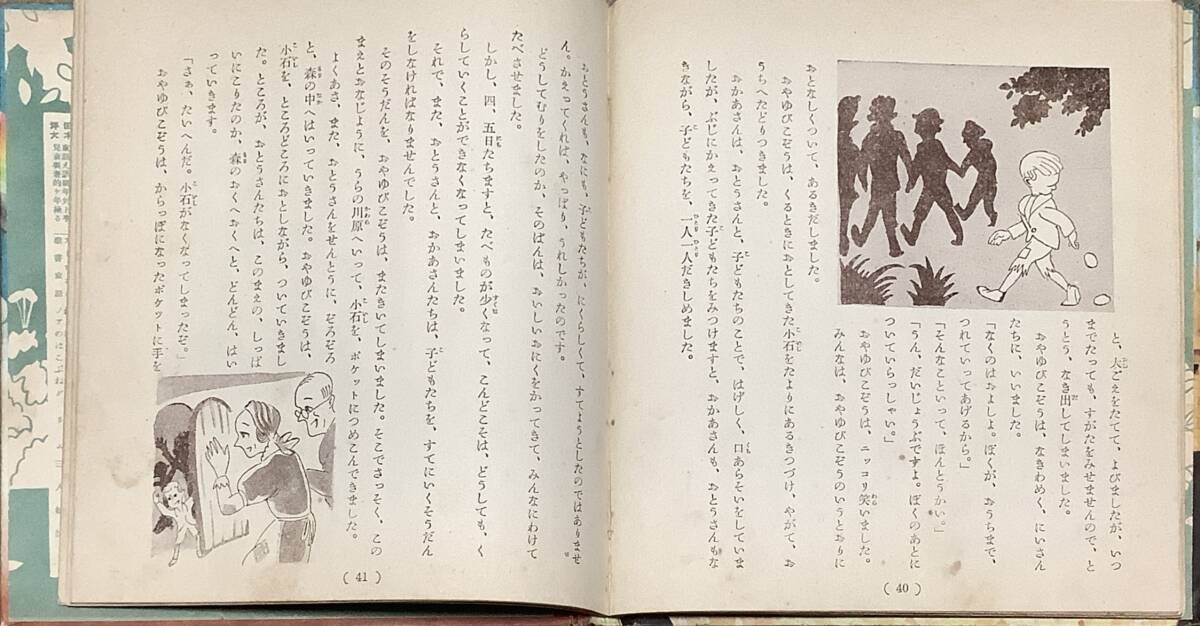 と、大ごえをたてて、よびましたが、いつ
までたっても、すがたをみせませんので、と
うとう、なき出してしまいました。
おやゆびこぞうは、なきわめく、にいさん
たちに、いいました。
「なくのはおよしよ。ぼくが、おうちまで、
つれていってあげるから。」
「そんなこといって、ほんとうかい。」
「うん、だいじょうぶですよ。ぼくのあとに
ついていらっしゃい。」
おやゆびこぞうは、ニッコリ笑いました。
みんなは、おやゆびこぞうのいうとおりに
おとなしくついて、あるきだしました。
おやゆびこぞうは、くるときにおとしてきた小石をたよりにあるきつづけ、やがて、お
うちへたどりつきました。
おかあさんは、おとうさんと、子どもたちのことで、はげしく、口あらそいをしていま
したが、ぶじにかえってきた子どもたちをみつけますと、おかあさんも、おとうさんもな
きながら、子どもたちを、一人一人だきしめました。
(40)
おとうさんも、なにも、子どもたちが、にくらしくて、すてようとしたのではありませ
ん。かえってくれば、やっぱり、うれしかったのです。
どうしてむりをしたのか、そのばんは、おいしいおにくをかってきて、みんなにわけて
たべさせました。
しかし、四、五日たちますと、たべものが少くなって、こんどこそは、どうしても、く
らしていくことができなくなってしまいました。
それで、また、おとうさんと、おかあさんたちは、子どもたちを、すてにいくそうだん
をしなければなりませんでした。
そのそうだんを、おやゆびこぞうは、またきいてしまいました。そこでさっそく、この
まえとおなじように、うらの川原へいって、小石を、ポケットにつめこんできました。
よくあさ、また、おとうさんをせんとうに、ぞろぞろ
と、森の中へはいっていきました。おやゆびこぞうは、
小石を、ところどころにおとしながら、ついていきまし
た。ところが、おとうさんたちは、このまえの、しっぱ
いにこりたのか、森のおくへおくへと、どんどん、はい
っていきます。
「さぁ、たいへんだ。小石がなくなってしまったぞ。」
おやゆびこぞうは、からっぽになったポケットに手を
(41)